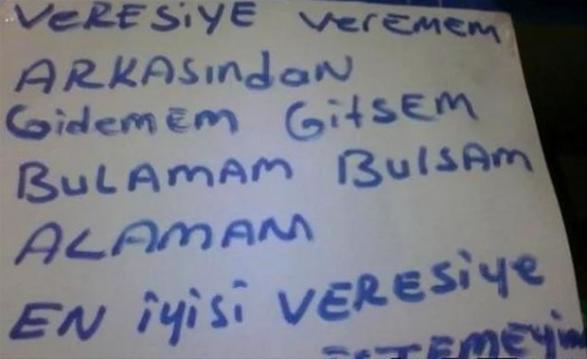 VERESİYE VerEMEM
ARKASındaN
GidemEM GitSEM
BULAMAM BUlSAM
ALAMAM
EN iyisi VERESiye